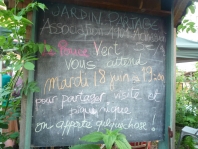 JARDIN PARTAGÉ
Association
Le Pouce Vert
vous attend
mardi 18 juin à 19h30
pour partager visite et
pique nique
on apporte quelque chose!